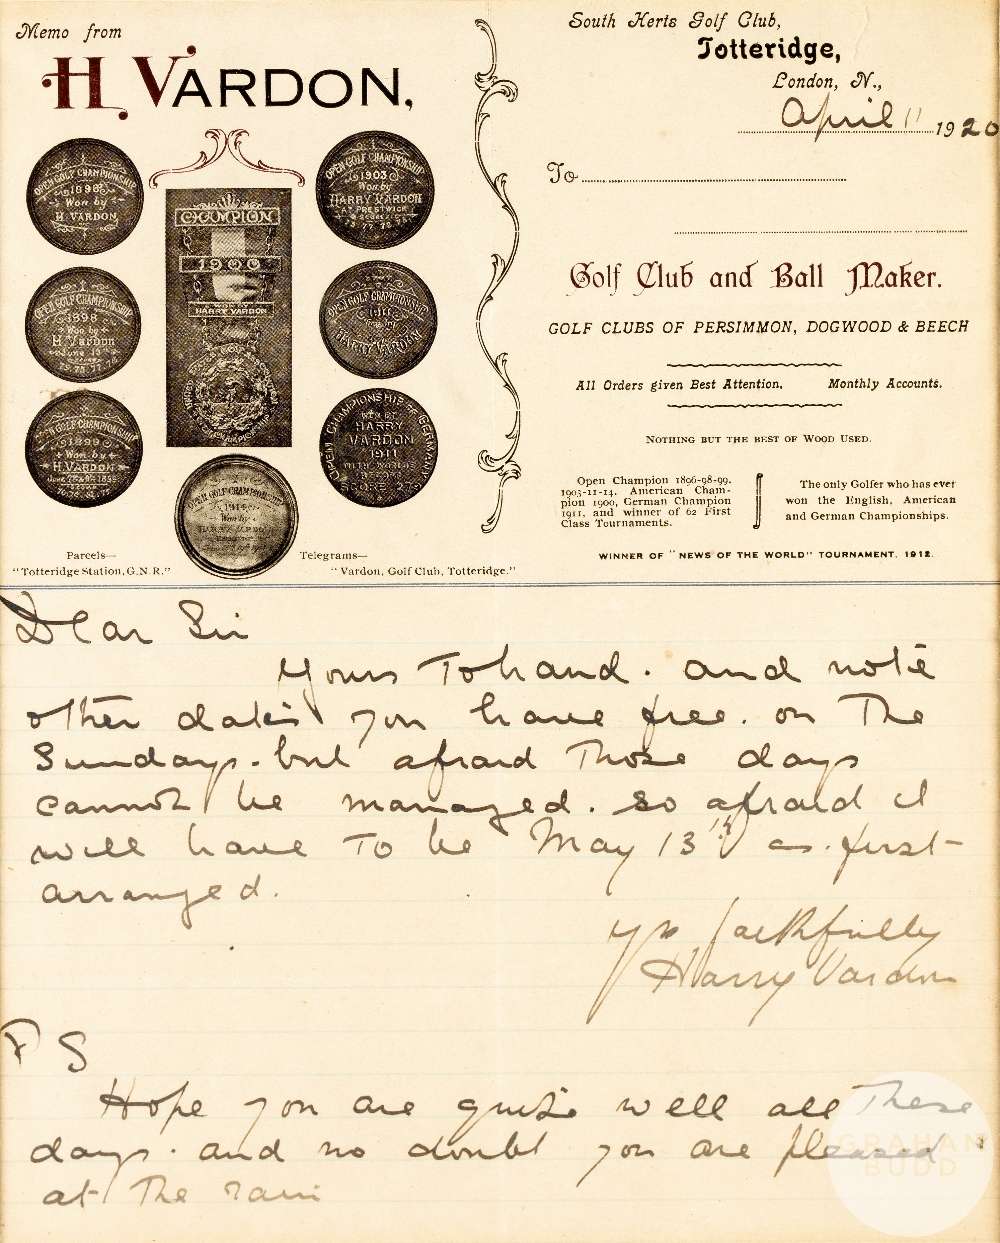 Memo from
H. VARDON,
South Herts Golf Club,
Totteridge,
London, N.,
April 11 1920
To
Golf Club and Ball Maker.
GOLF CLUBS OF PERSIMMON, DOGWOOD & BEECH
All Orders given Best Attention. Monthly Accounts.
NOTHING BUT THE BEST OF WOOD USED.
Open Champion 1896-98-99.
1903-11-14. American Cham-
pion 1900, German Champion
1911, and winner of 62 First
Class Tournaments.
The only Golfer who has ever
won the English, American
and German Championships.
WINNER OF "NEWS OF THE WORLD" TOURNAMENT. 1912.
OPEN GOLF CHAMPIONSHIP
1896
Won by
H. VARDON
OPEN GOLF CHAMPIONSHIP
1898
Won by
H. Vardon
June
OPEN GOLF CHAMPIONSHIP
1899
Won by
H. VARDON
CHAMPION
1900
WON BY
HARRY VARDON
OPEN GOLF CHAMPIONSHIP
1903
Won by
HARRY VARDON
AT PRESTWICK
OPEN GOLF CHAMPIONSHIP
1911
HARRY VARDON
OPEN CHAMPIONSHIP OF GERMANY
WON BY
HARRY
VARDON
1911
SCORE 279
OPEN GOLF CHAMPIONSHIP
1914
Won by
Parcels—
"Totteridge Station, G.N.R."
Telegrams—
"Vardon, Golf Club, Totteridge."
Dear Sir
Yours To hand. and note
other dates you have free. on The
Sundays. but afraid Those days
cannot be managed. so afraid it
will have To be May 13th as. first
arranged.
Yrs faithfully
Harry Vardon
P S
Hope you are quite well all These
days. and no doubt you are pleased
at The rain
GRAHAM
BUDD